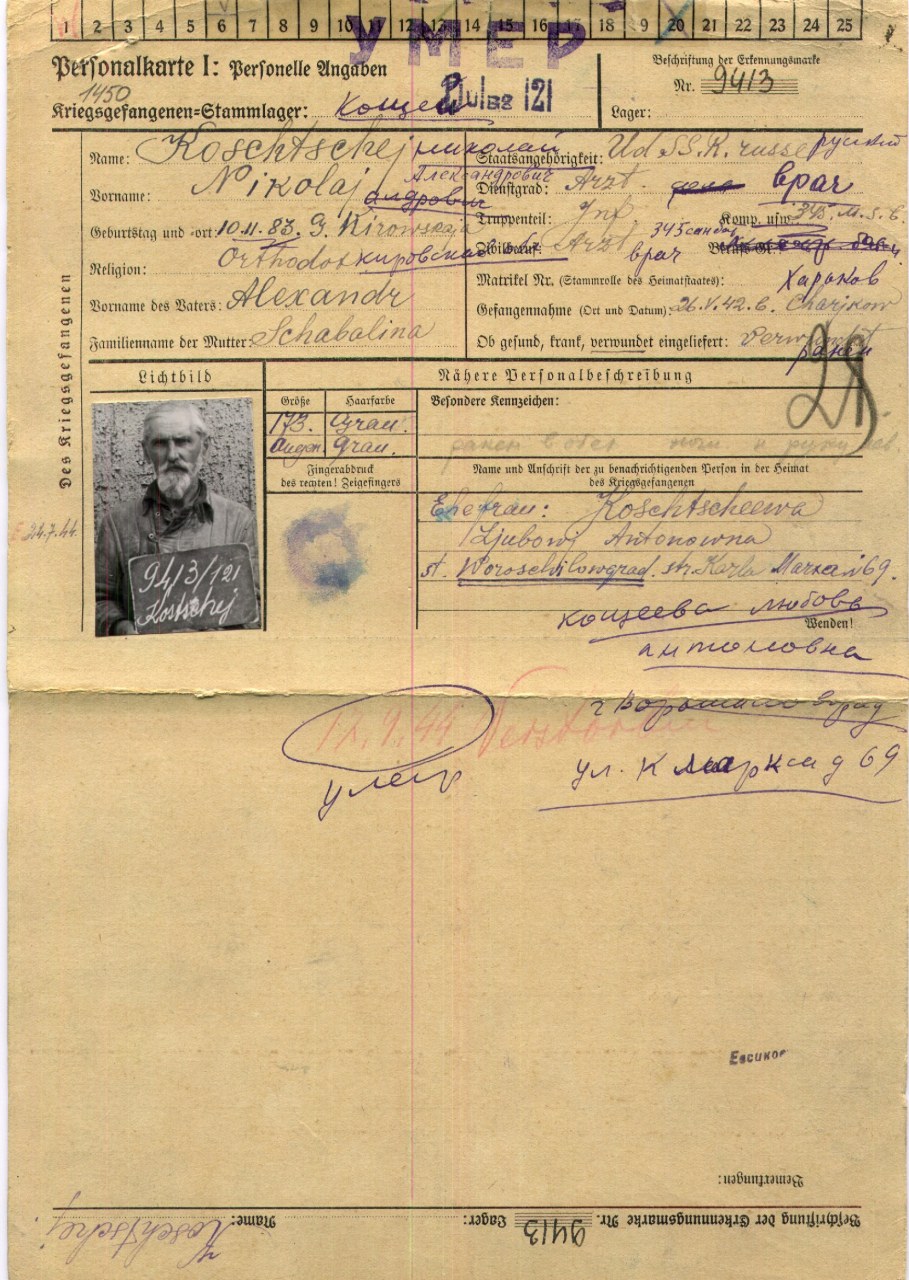 1 2 3 4 5 6 7 8 9 10 11 12 13 14 15 16 17 18 9 20 21 22 23 24 25
УМЕР
Personalkarte I: Personelle Angaben
Beschriftung der Erkennungsmarke
Nr. 9413
1450
Kriegsgefangenen-Stammlager: Кощей 121
Lager:
Des Kriegsgefangenen
Name: Koschtschej николай
Александрович
Vorname: Nikolaj
Geburtstag und -ort: 10.11.83. G. Kirowskaja
Religion: Orthodox кировская обл
Vorname des Vaters: Alexandr
Familienname der Mutter: Schabalina
Staatsangehörigkeit: UdSS.R. russe руский
Dienstgrad: Arzt. врач
Truppenteil: Inf. Komp. usw.:
Zivilberuf: Arzt 345 санбат Berufs-Gr.:
врач
Matrikel Nr. (Stammrolle des Heimatstaates): Харьков
Gefangennahme (Ort und Datum): 26.V.42. b. Charjkow
Ob gesund, krank, verwundet eingeliefert: verwundet
ранен
Lichtbild
Nähere Personalbeschreibung
Größe Haarfarbe
173. Grau.
Augen. Grau.
Fingerabdruck
des rechten! Zeigefingers
Besondere Kennzeichen:
ранен в обе ноги и руку лев.
Name und Anschrift der zu benachrichtigenden Person in der Heimat
des Kriegsgefangenen
Ehefrau: Koschtscheewa
Ljubowj Antonowna
st. Woroschilowgrad. str. Karla Marxa 69.
24.7.44.
9413/121
Kostschej
кощеева любовь
Wenden!
антоновна
г Ворошиловград
ул. К Маркса д 69
12.9.44 Verstorben
умер
Евсиков
Bemerkungen:
Beschriftung der Erkennungsmarke Nr. 9413 Lager: Name: Koschtschej